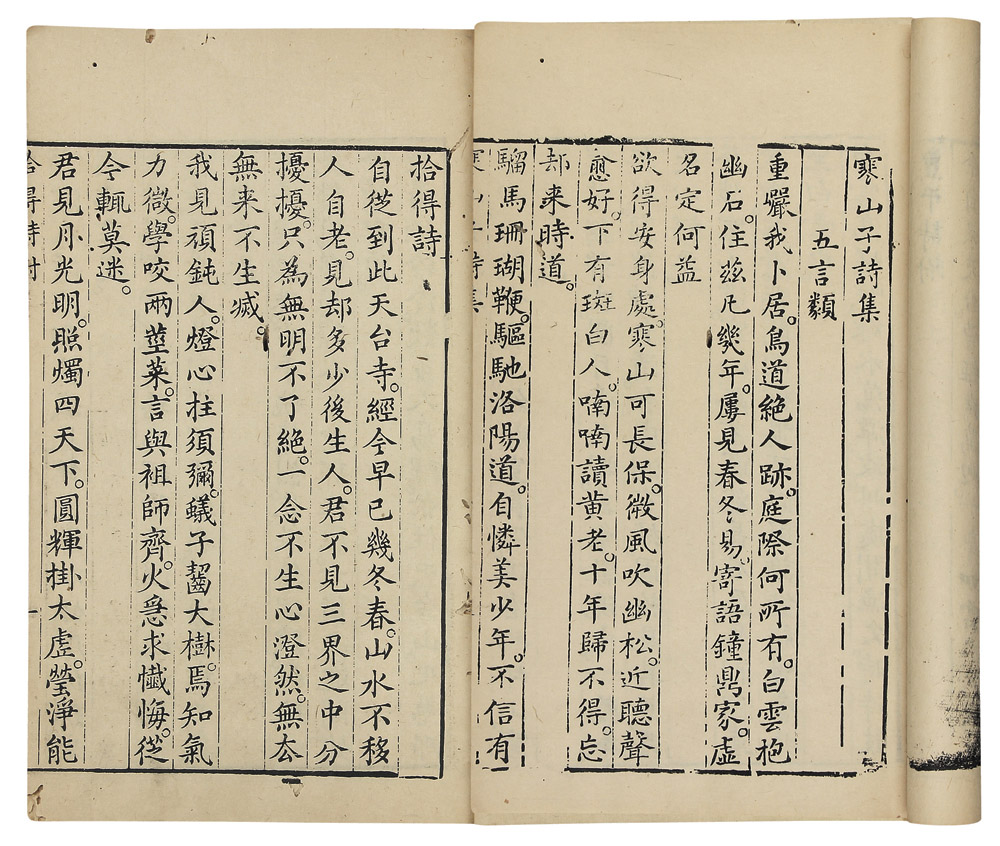 寒山子詩集
五言類
重巖我卜居。鳥道絶人跡。庭際何所有。白雲抱
幽石。住茲凡幾年。屢見春冬易。寄語鐘鼎家。虛
名定何益
欲得安身處。寒山可長保。微風吹幽松。近聽聲
愈好。下有斑白人。喃喃讀黃老。十年歸不得。忘
却来時道。
騮馬珊瑚鞭。驅馳洛陽道。自憐美少年。不信有
寒山子詩集
拾得詩
自從到此天台寺。經今早已幾冬春。山水不移
人自老。見却多少後生人。君不見三界之中分
擾擾。只為無明不了絶。一念不生心澄然。無去
無来不生滅。
我見頑鈍人。燈心拄須彌。蟻子齧大樹。焉知氣
力微。學咬兩莖菜。言與祖師齊。火急求懺悔。從
今輒莫迷。
君見月光明。照燭四天下。圓輝掛太虛。瑩淨能
拾得詩附
一